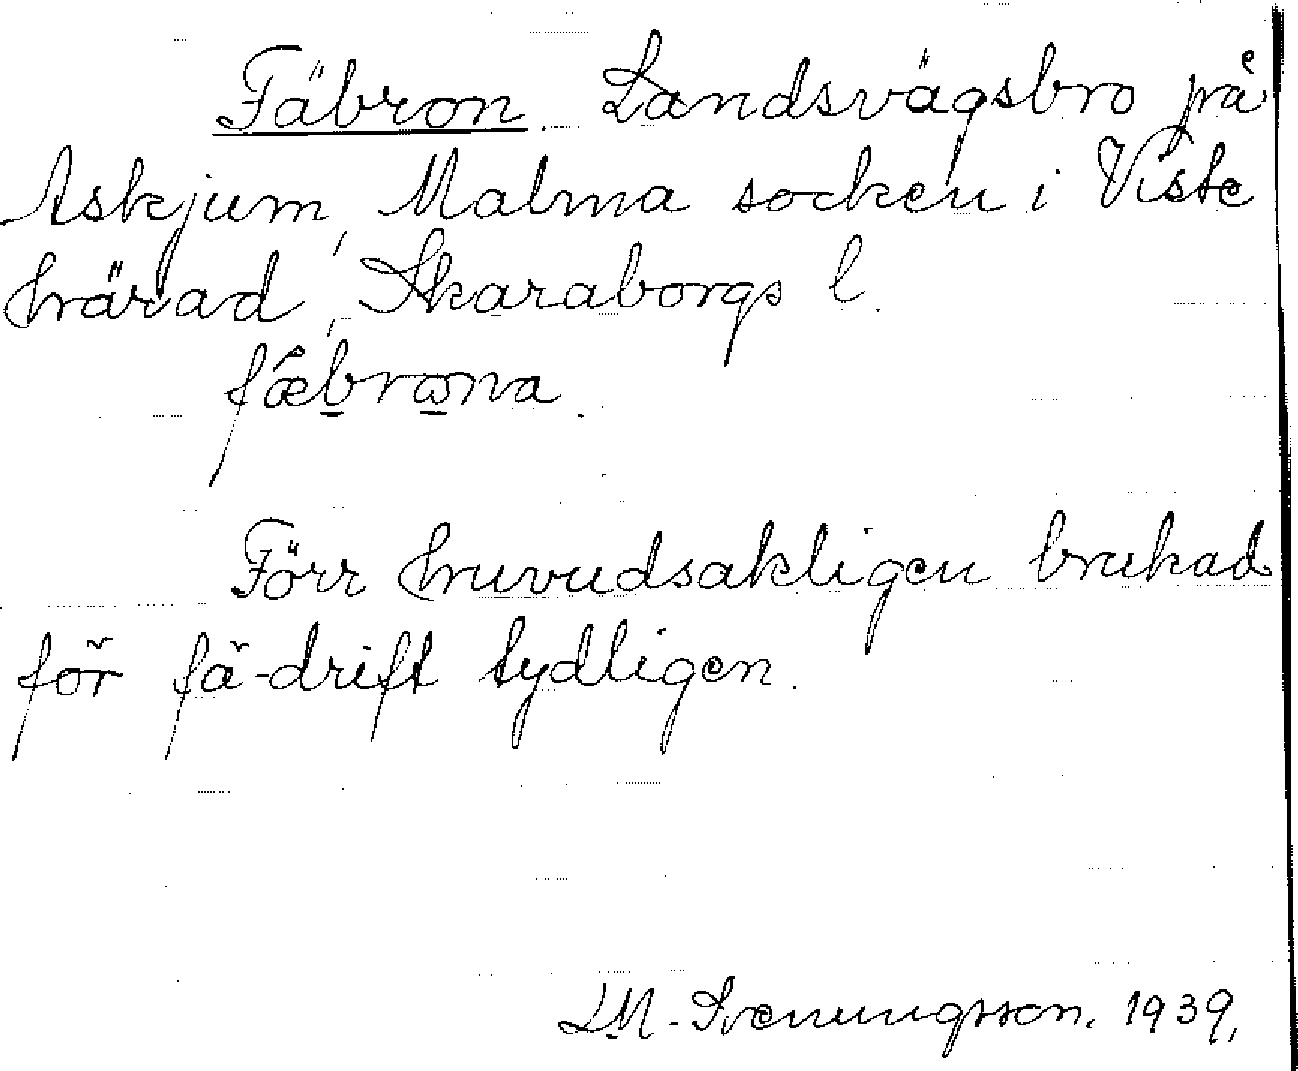 Fäbron. Landsvägsbro på
Askjum, Malma socken i Viste
härad, Skaraborgs l.
fæbrona.
Förr huvudsakligen brukad
för fä-drift tydligen.
LM. Svenungsson. 1939,